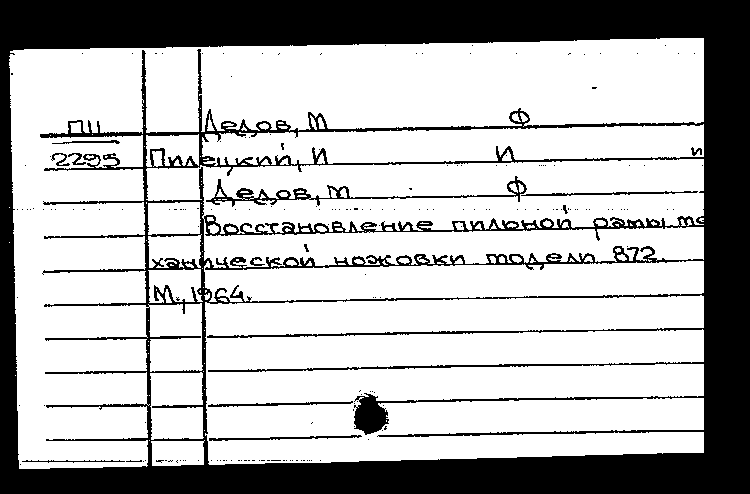 ПII Дедов, М Ф
2295 Пилецкий, И И и
Дедов, М Ф
Восстановление пильной рамы ме
ханической ножовки модели 872.
М., 1964.